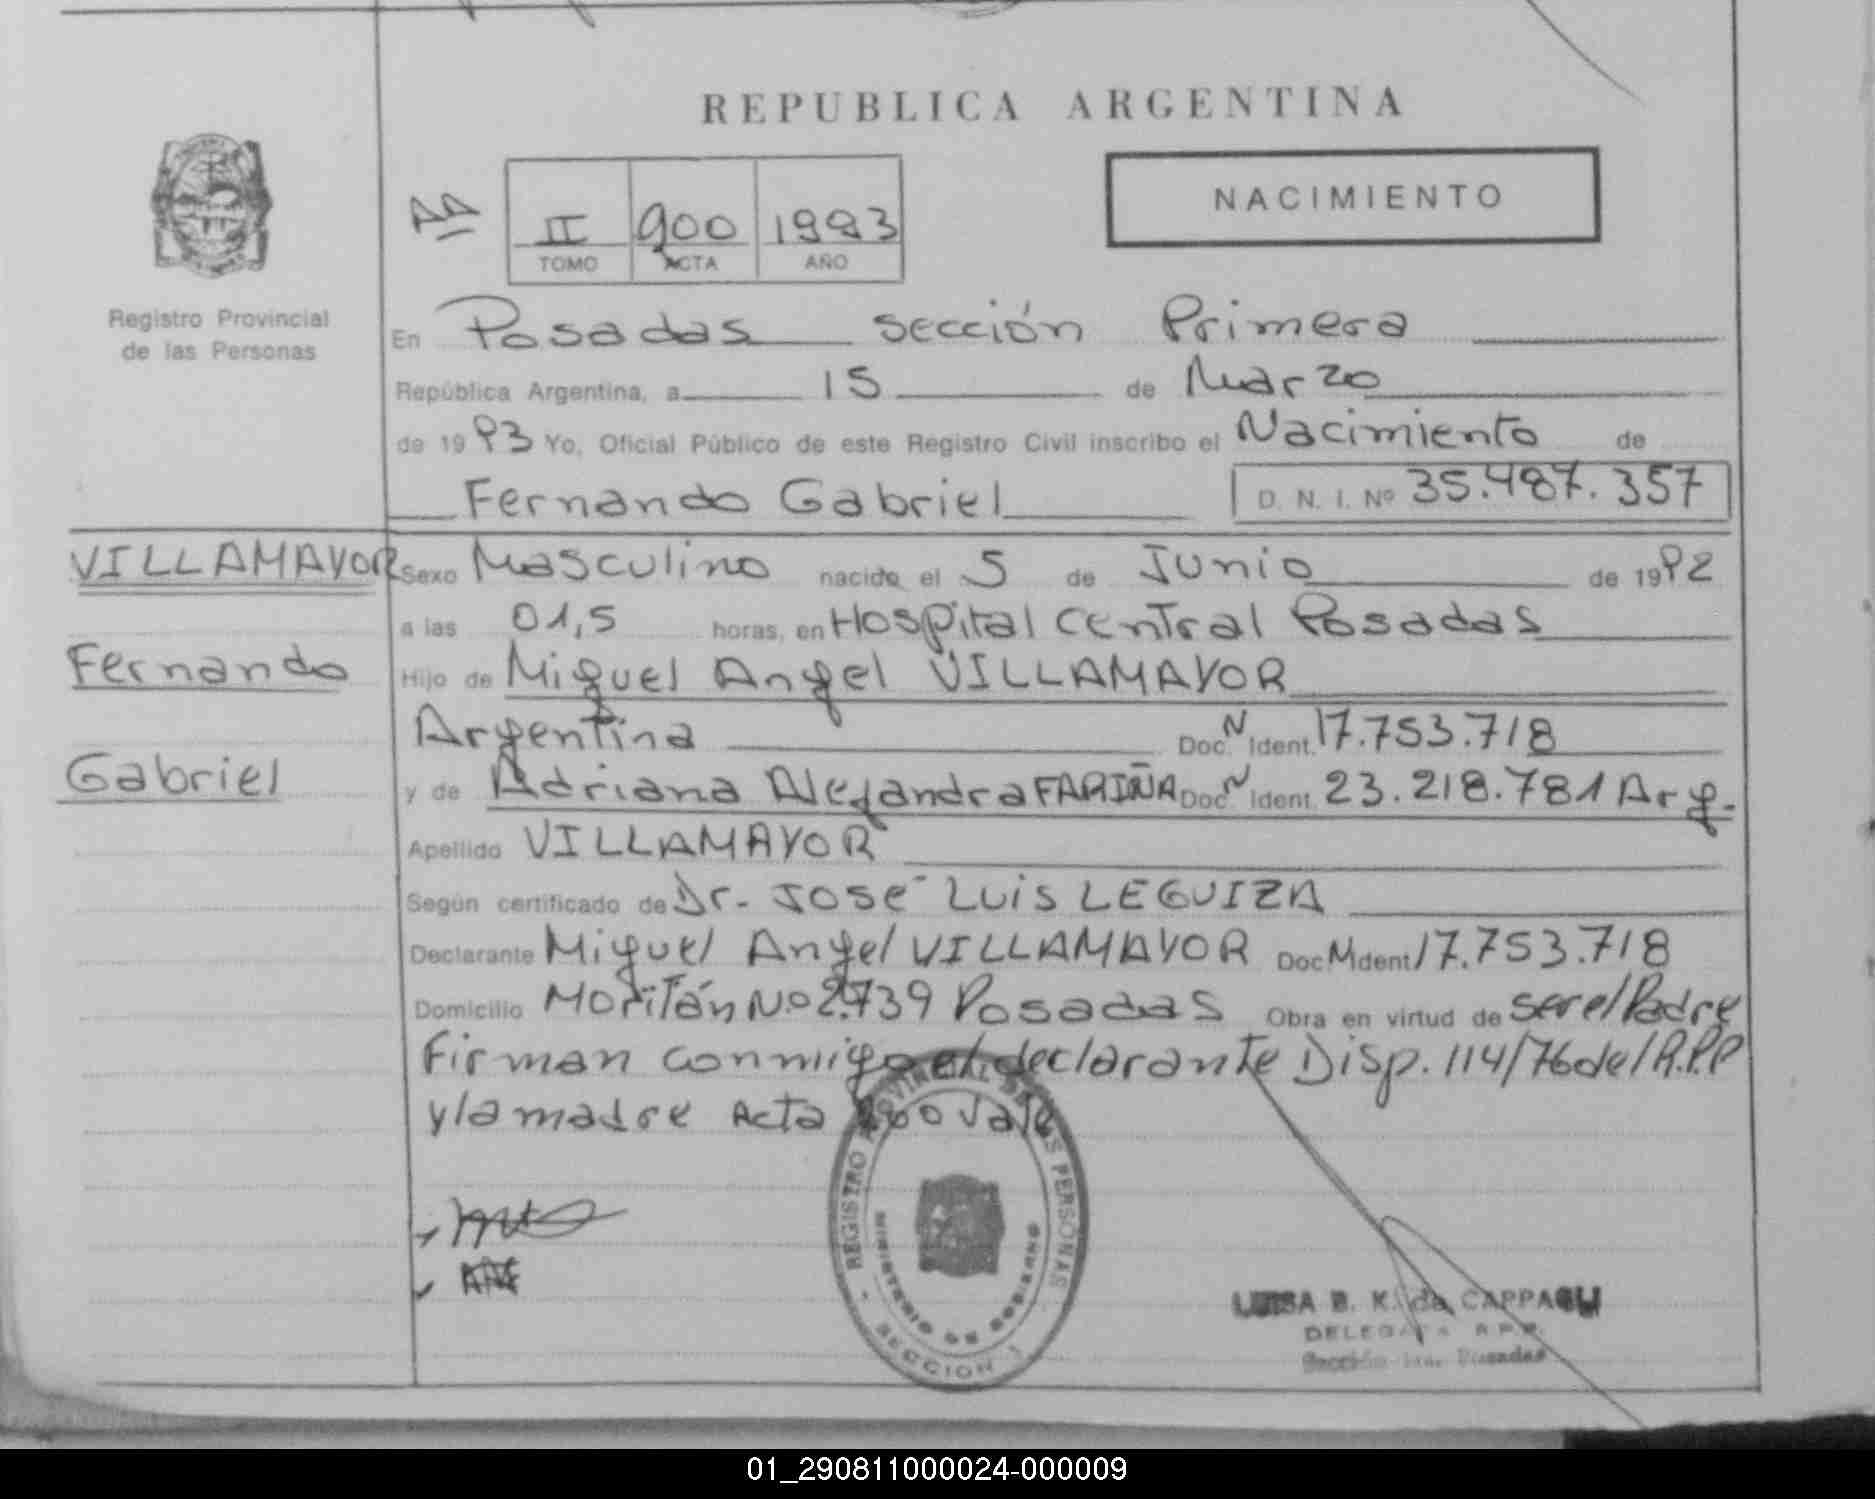 REPUBLICA ARGENTINA
NACIMIENTO
II 900 1993
TOMO ACTA AÑO
Registro Provincial
de las Personas
En Posadas sección Primera
República Argentina, a 15 de Marzo
de 1993 Yo, Oficial Público de este Registro Civil inscribo el Nacimiento de
Fernando Gabriel D. N. I. Nº 35.487.357
VILLAMAYOR
Fernando
Gabriel
Sexo Masculino nacido el 5 de Junio de 1992
a las 01,5 horas, en Hospital Central Posadas
Hijo de Miguel Angel VILLAMAYOR
Argentina Doc. N Ident. 17.753.718
y de Adriana Alejandra FARIÑA Doc. N Ident. 23.218.781 Arg.
Apellido VILLAMAYOR
Según certificado de Dr. José Luis LEGUIZA
Declarante Miguel Angel VILLAMAYOR Doc N Ident 17.753.718
Domicilio No 2.739 Posadas Obra en virtud de ser el Padre
Firman conmigo el declarante Disp. 114/76 del R.P.P
y la madre Acta 900 Vale
REGISTRO PROVINCIAL DE LAS PERSONAS
MINISTERIO DE GOBIERNO
SECCION 1
LUISA B. K. de CAPPAGLI
DELEGADA R.P.P.
Sección 1ra. Posadas
01_290811000024-000009